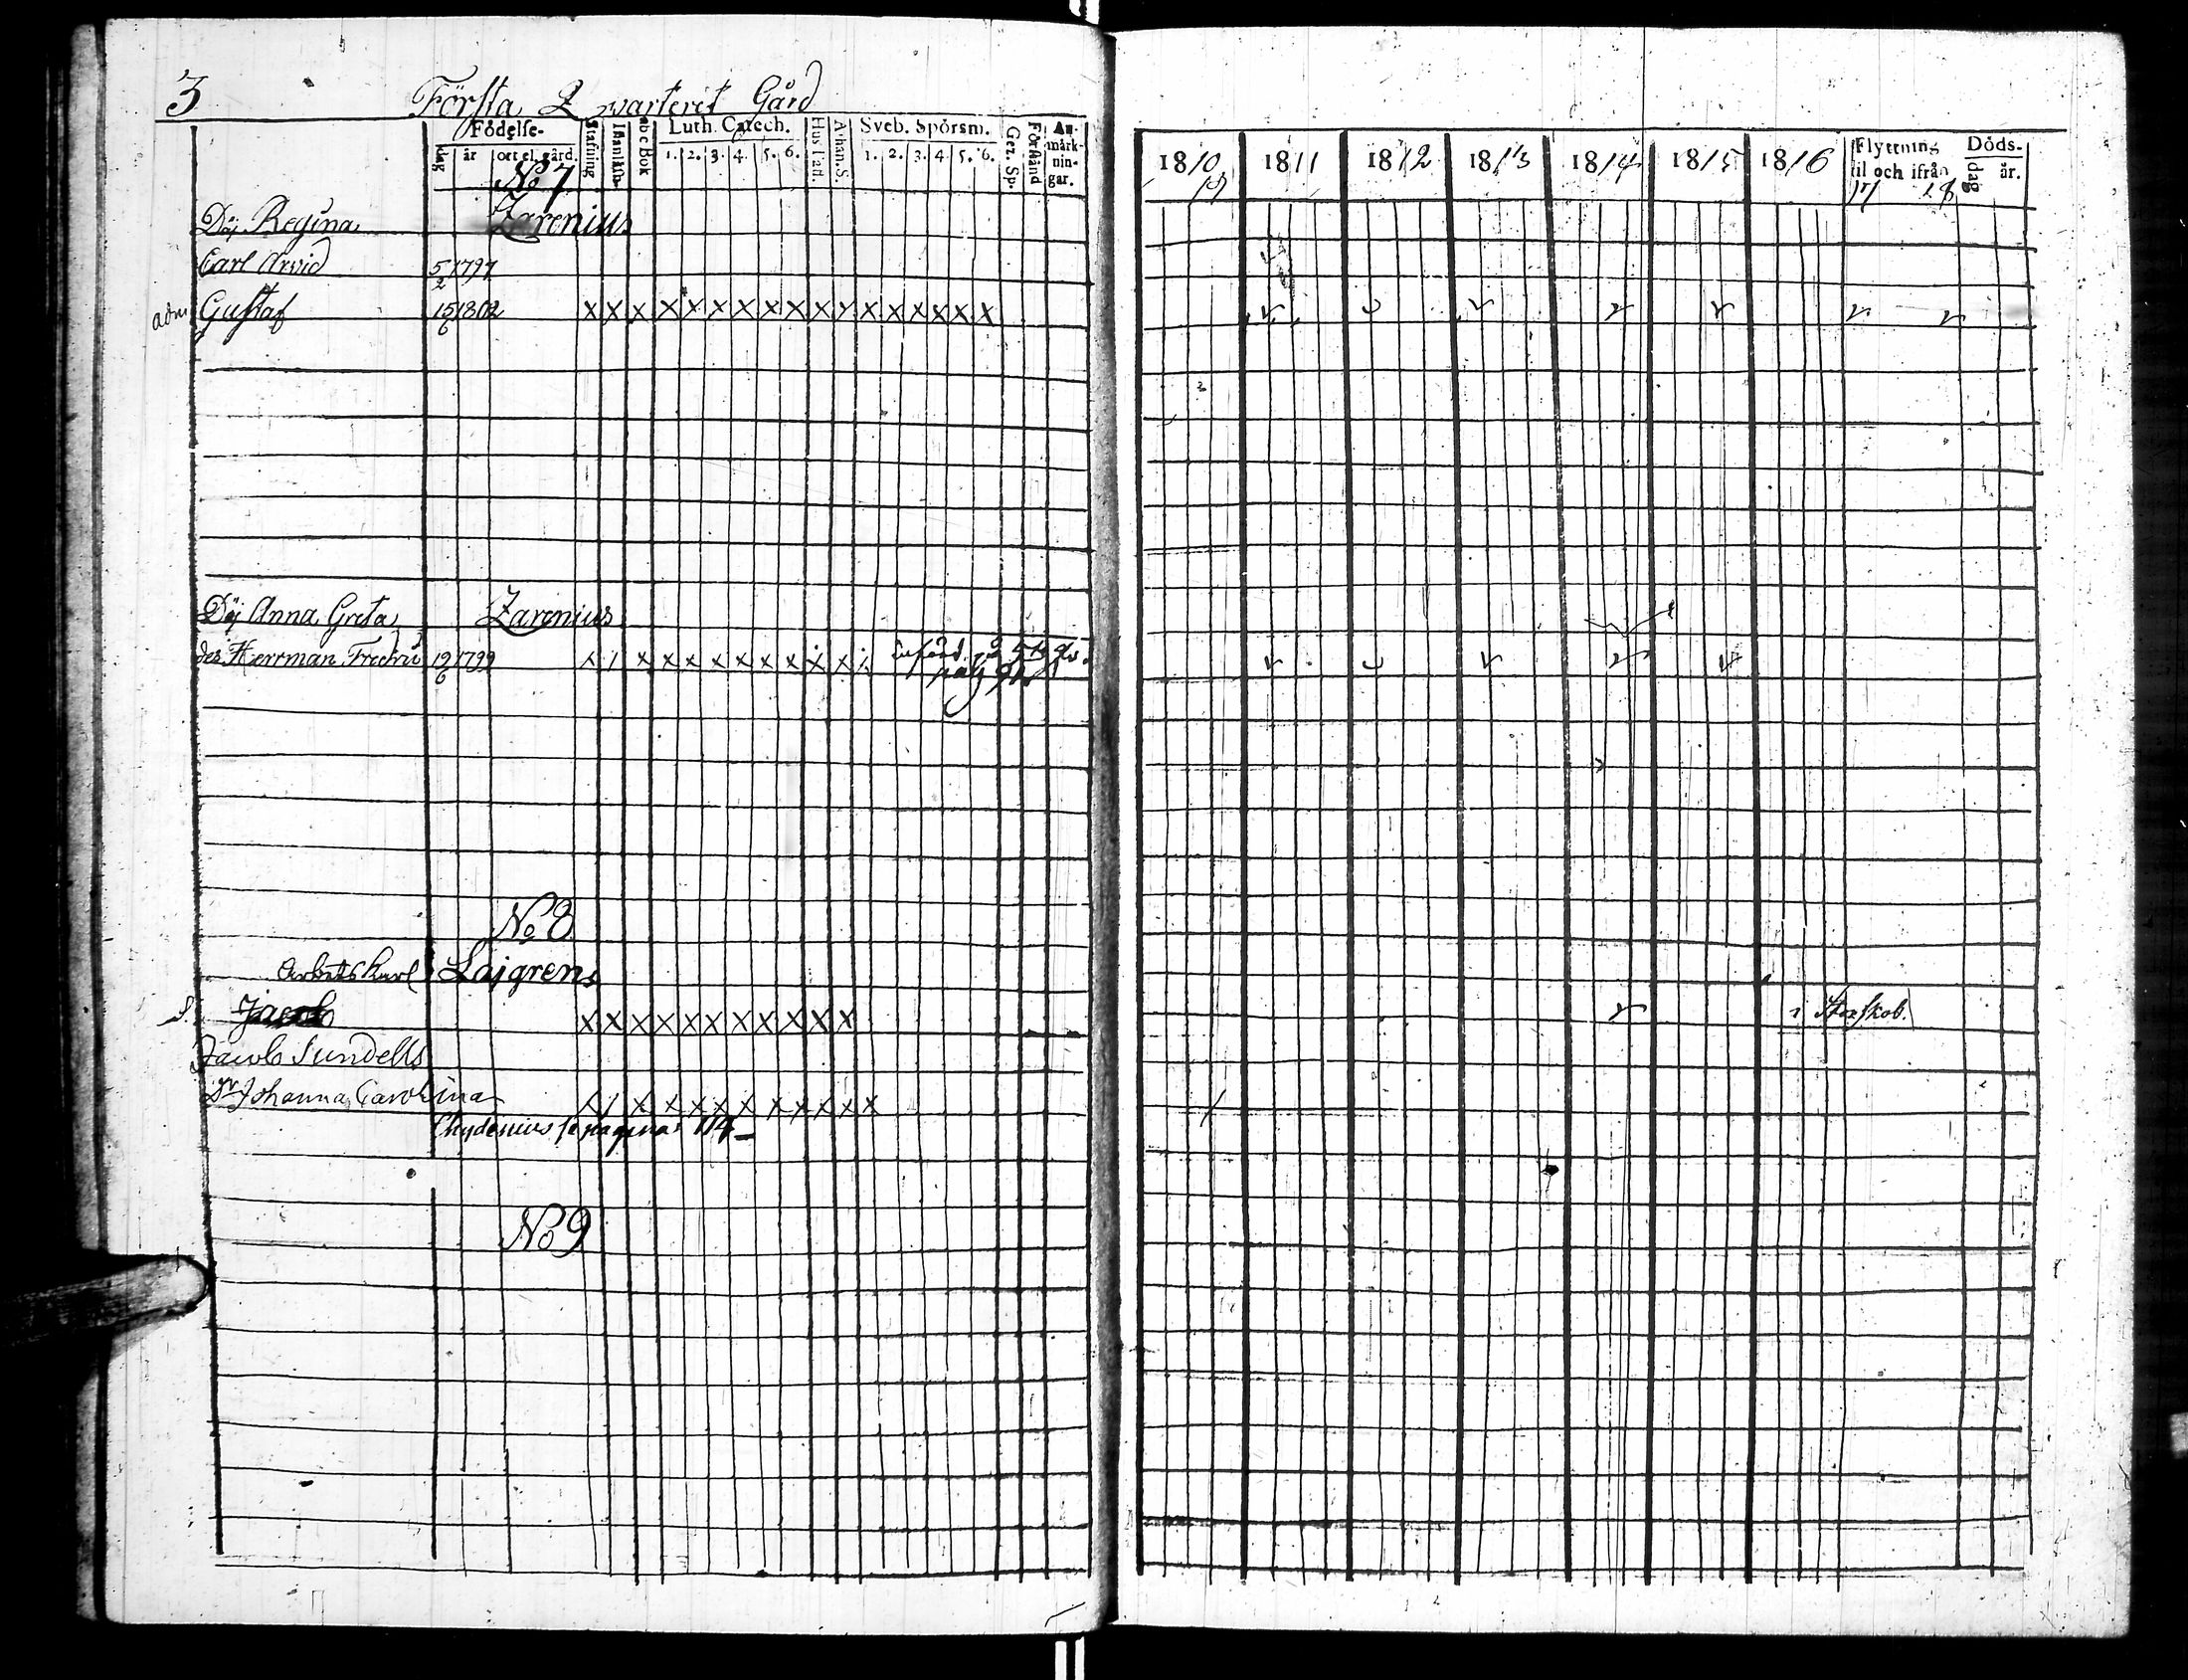 3 Första Qwarteret Gård
Födelse-
dag år ort el. gård. Stafning Innanläsn. abc Bok Luth. Catech. 1. 2. 3. 4. 5. 6. Hust. Athan. S. Sveb. Spörsm. 1. 2. 3. 4. 5. 6. Gez. Sp. Förstånd Anmärkningar.
1810 1811 1812 1813 1814 1815 1816 Flyttning til och ifrån Döds- dag år.
17 17 18
No 7
Döj Regina Zarenius
Carl Arvid 5/2 1797
adm Gustaf 15/6 1802 x x x x x x x x x x x x x x x x x
Döj Anna Greta Zarenius
des Herrman Fredric 19/6 1799 x / x x x x x x x x x x
No 8
Arbets Karl Lajgrens
Jacob x x x x x x x x x x x Storskob.
Jacob Sundells
Dr Johanna Carolina x / x x x x x x x x x x
Chydenius se pagina 114 -
No 9